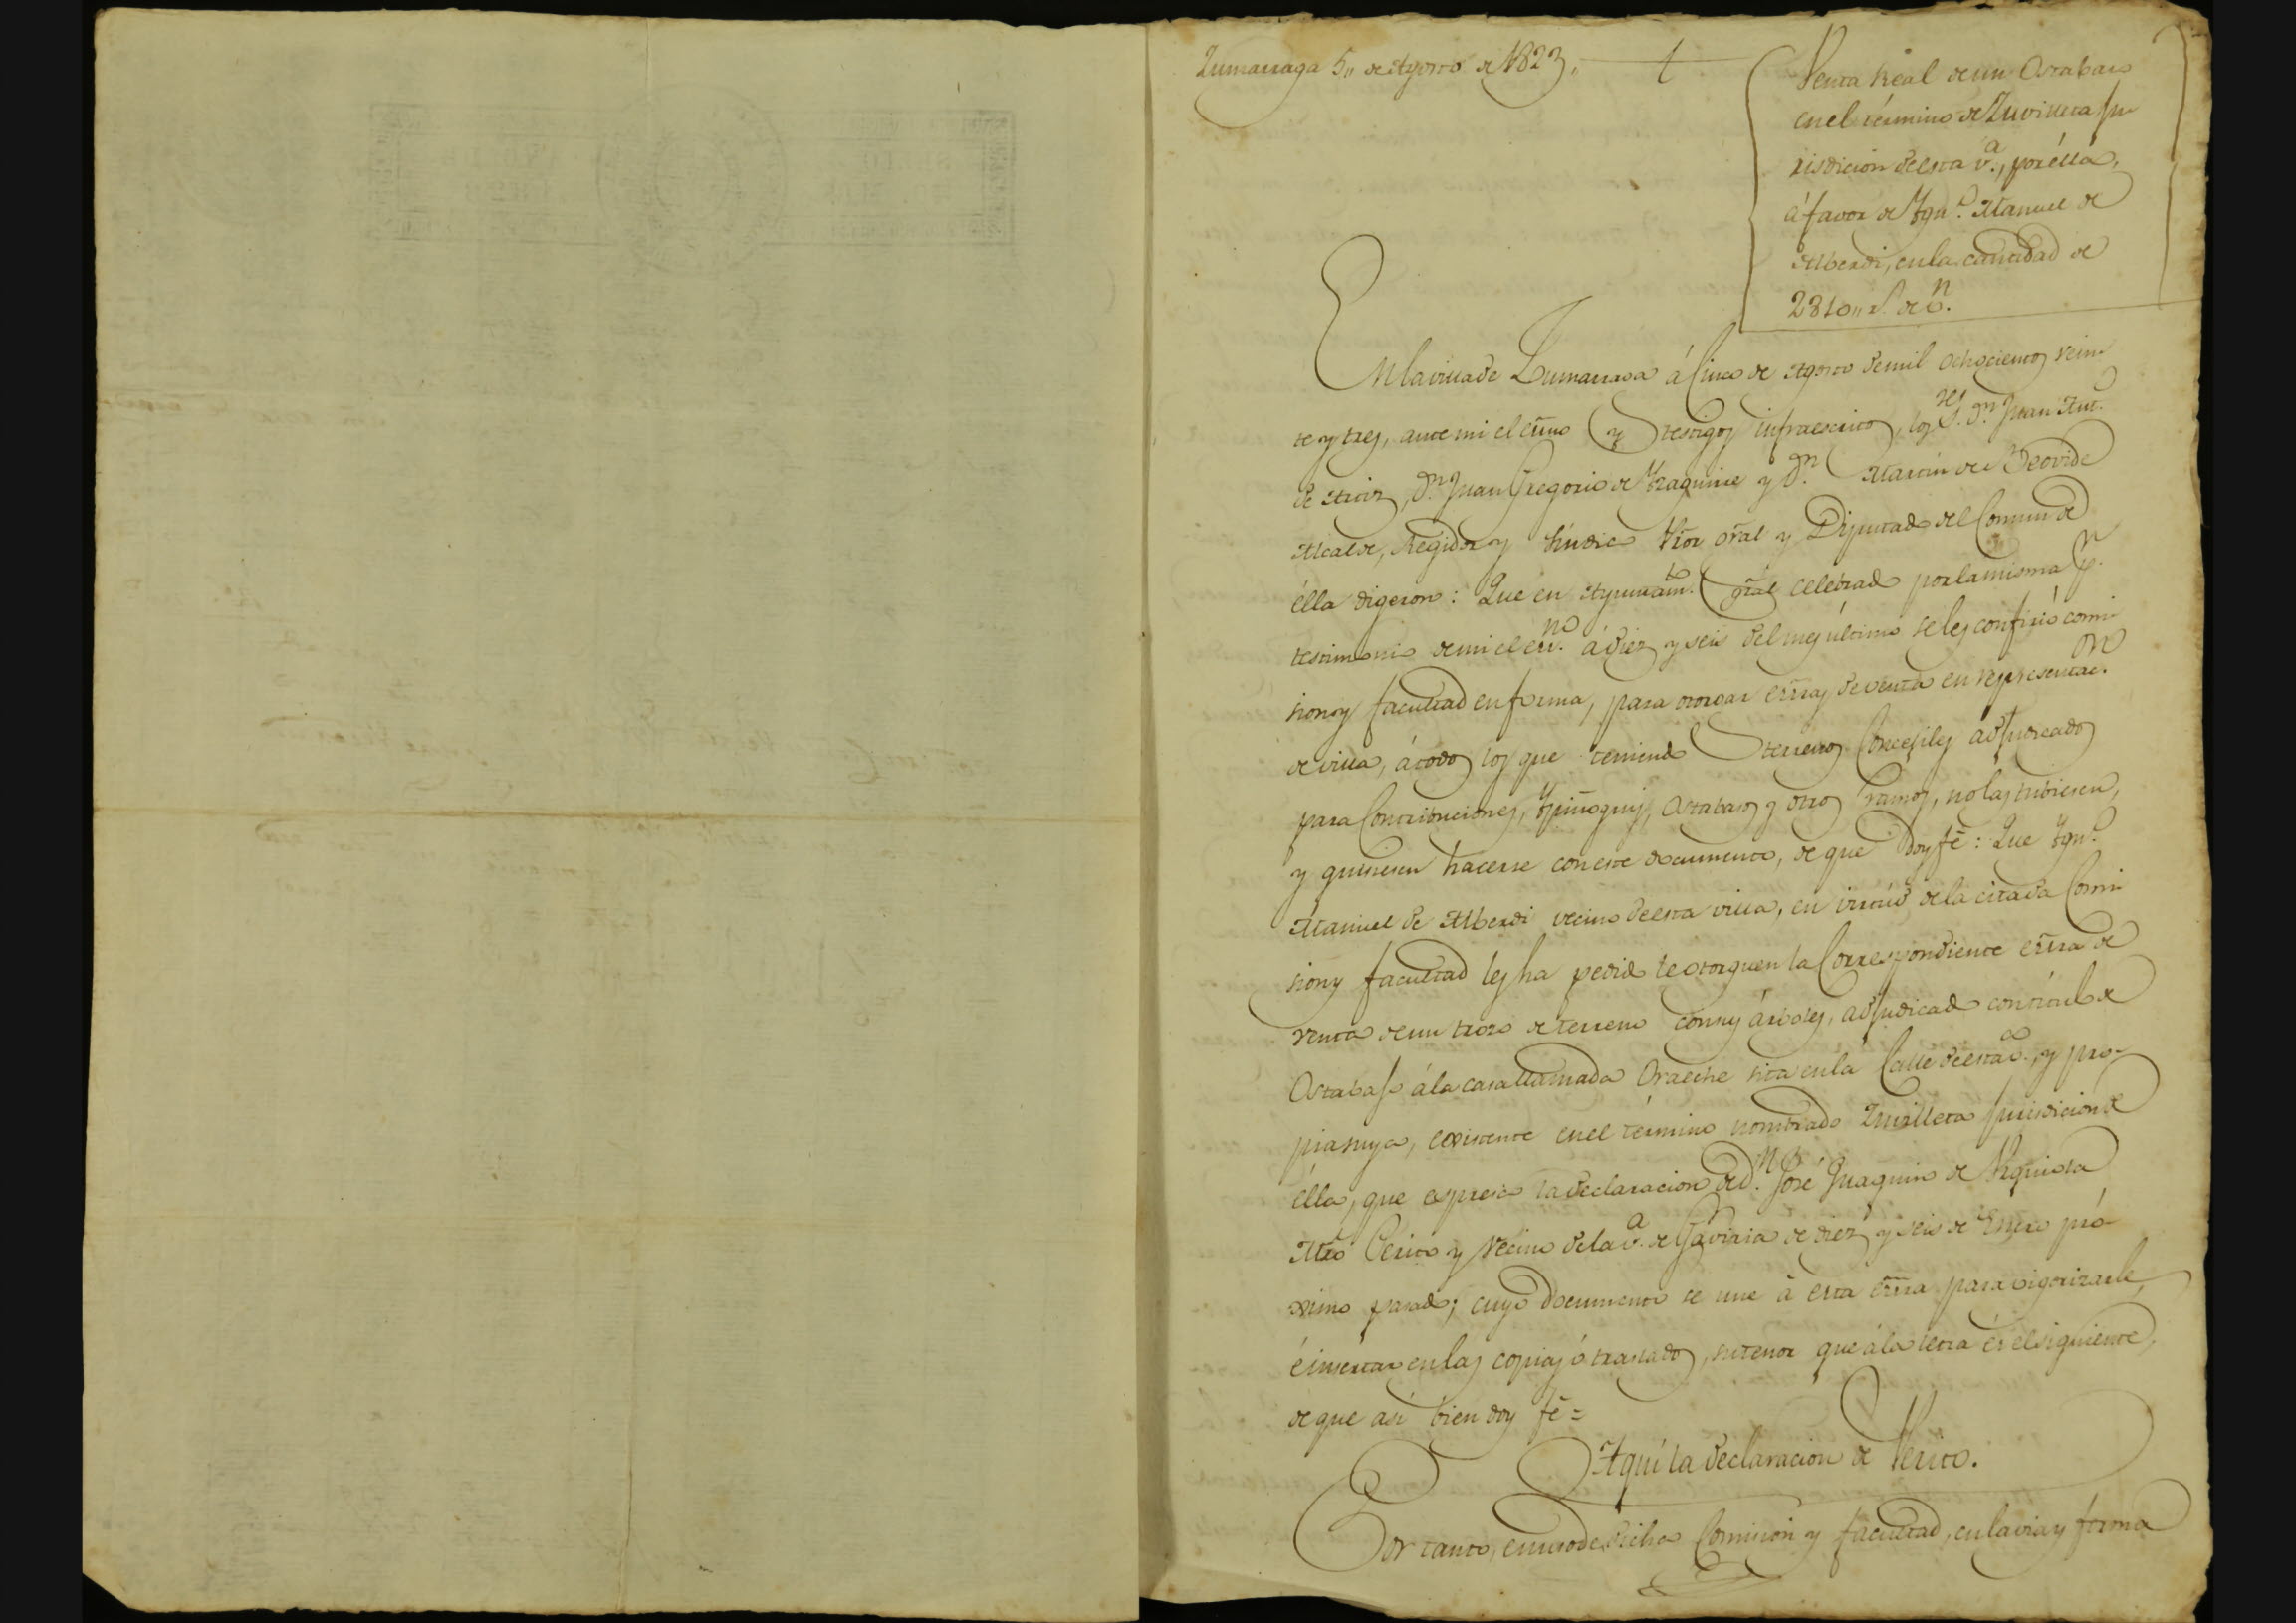 Zumarraga 5,, de Agosto de 1823,,
Venta Real de un Ostabaso
en el término de Zuvilleta Ju-
risdicion deesta v.ª, por élla,
á favor de Ygn.º Manuel de
Alberdi, en la cantidad de
2810,, r.s de v.n
En la villa de Zumarraga á Cinco de Agosto de mil ochocientos vein-
te y tres, ante mi el esñno y testigos infraescritos, los S.res D.n Juan Ant.º
de D.n Juan Gregorio de Yzaguirre y D.n Martin de Beovide
Alcalde, Regidor y Síndico Pror gral y Diputado del Comun de
élla digeron: Que en Ayuntam.to gral celebrado por la misma p.r
testimonio de mi el esc.no á diez y seis del mes último se les confirió comi-
sion y facultad en forma, para otorgar esrras de venta en representac.on
de villa, á todos los que teniendo terrenos Concejiles adjudicados
para Contribuciones, Ostabasos y otros ramos, no las tubiesen,
y quisiesen hacerse con este documento, de que doy fé: Que Ygn.º
Manuel de Alberdi vecino deesta villa, en virtud de la citada Comi-
sion y facultad les ha pedido le otorguen la Correspondiente esrra de
venta de un trozo de terreno con sus árboles, adjudicado con título de
Ostabaso á la casa llamada Oraeche sita en la Calle deesta v.ª, y pro-
pia suya, existente en el término nombrado Zuvilleta jurisdicion de
élla, que expresa la declaracion de D.n José Juaquin de Urquiola
Mro Perito y vecino de la v.ª de Gaviria de diez y seis de Enero pró-
ximo pasado; cuyo documento se une á esta esrra para vigorizarle,
é insertar en las copias ó traslados, su tenor que á la letra és el siguiente,
de que asi bien doy fé=
Aquí la declaracion de Perito.
Por tanto, en uso de dicha Comision y facultad, en la via y forma